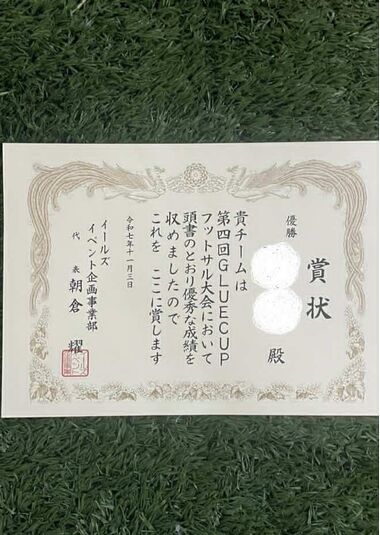 賞状
優勝
殿
貴チームは
第四回GLUECUP
フットサル大会において
頭書のとおり優秀な成績を
収めましたので
これを ここに賞します
令和七年十一月三日
イールズ
イベント企画事業部
代表 朝倉 耀